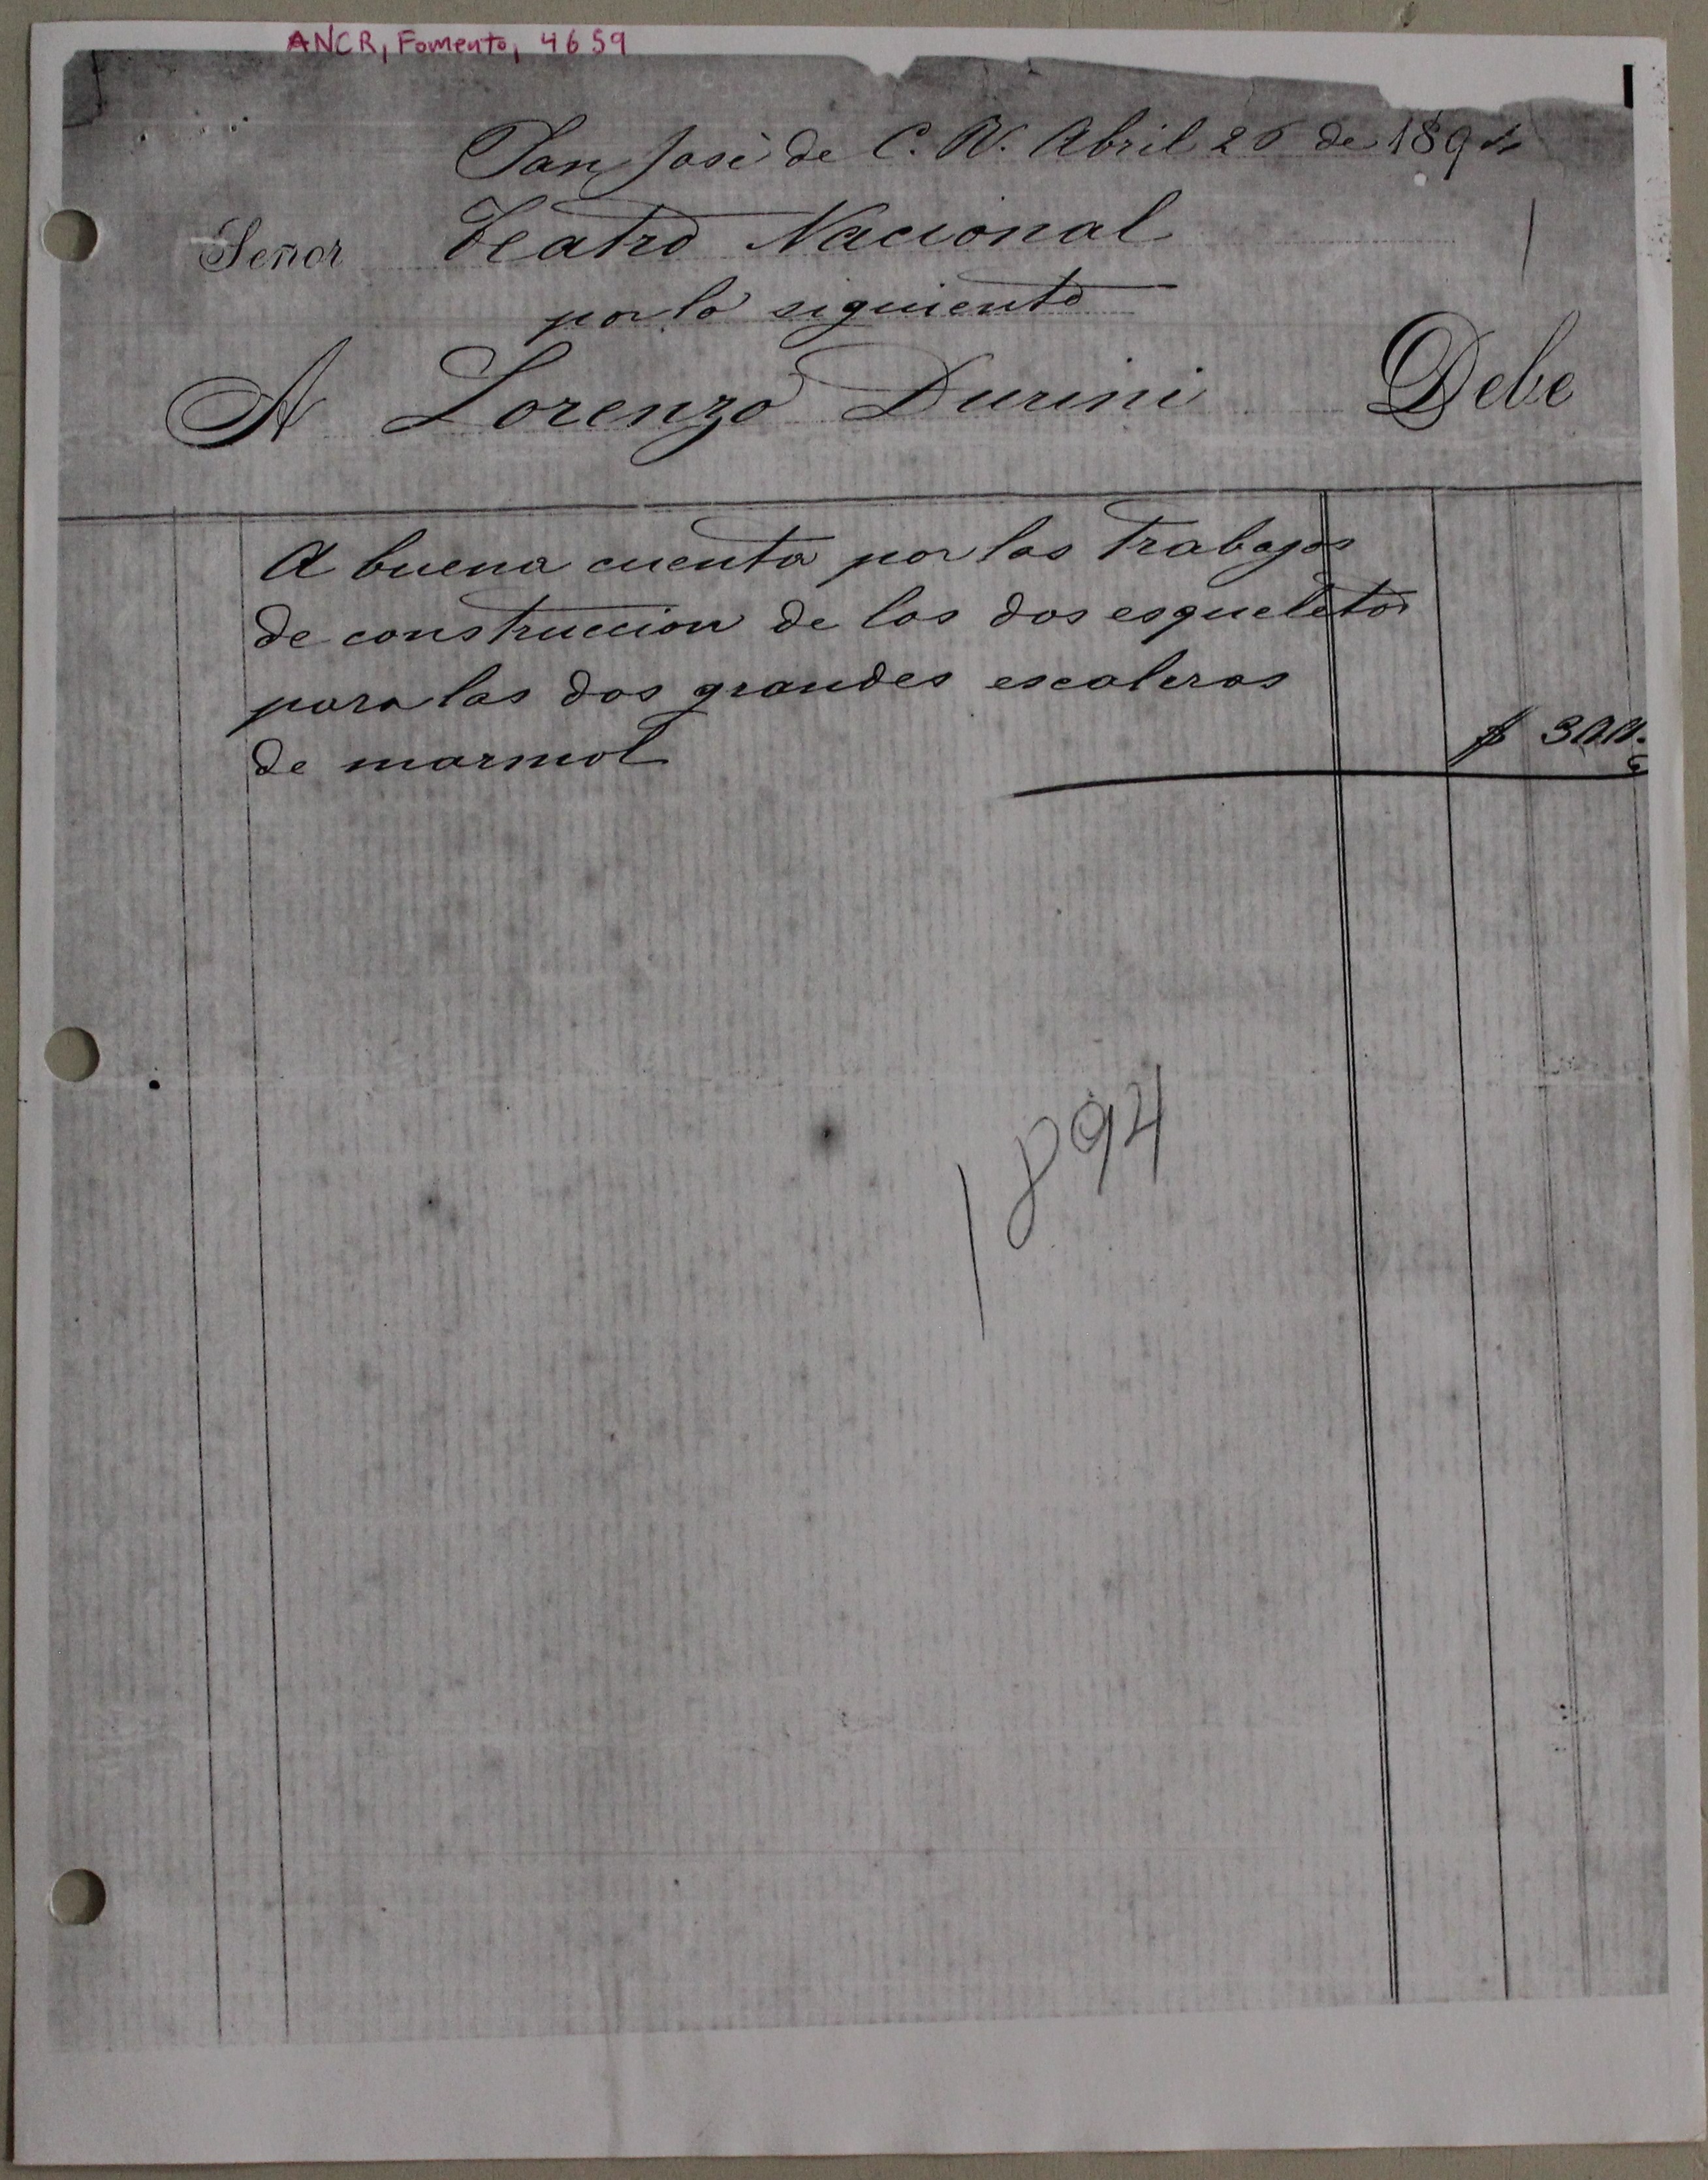 ANCR, Fomento, 4659
San José de C. R. Abril 26 de 1894
Señor Teatro Nacional
por lo siguiente
A Lorenzo Durini Debe
A buena cuenta por los trabajos
de construccion de los dos esqueletos
para las dos grandes escaleras
de marmol $ 300.
1894